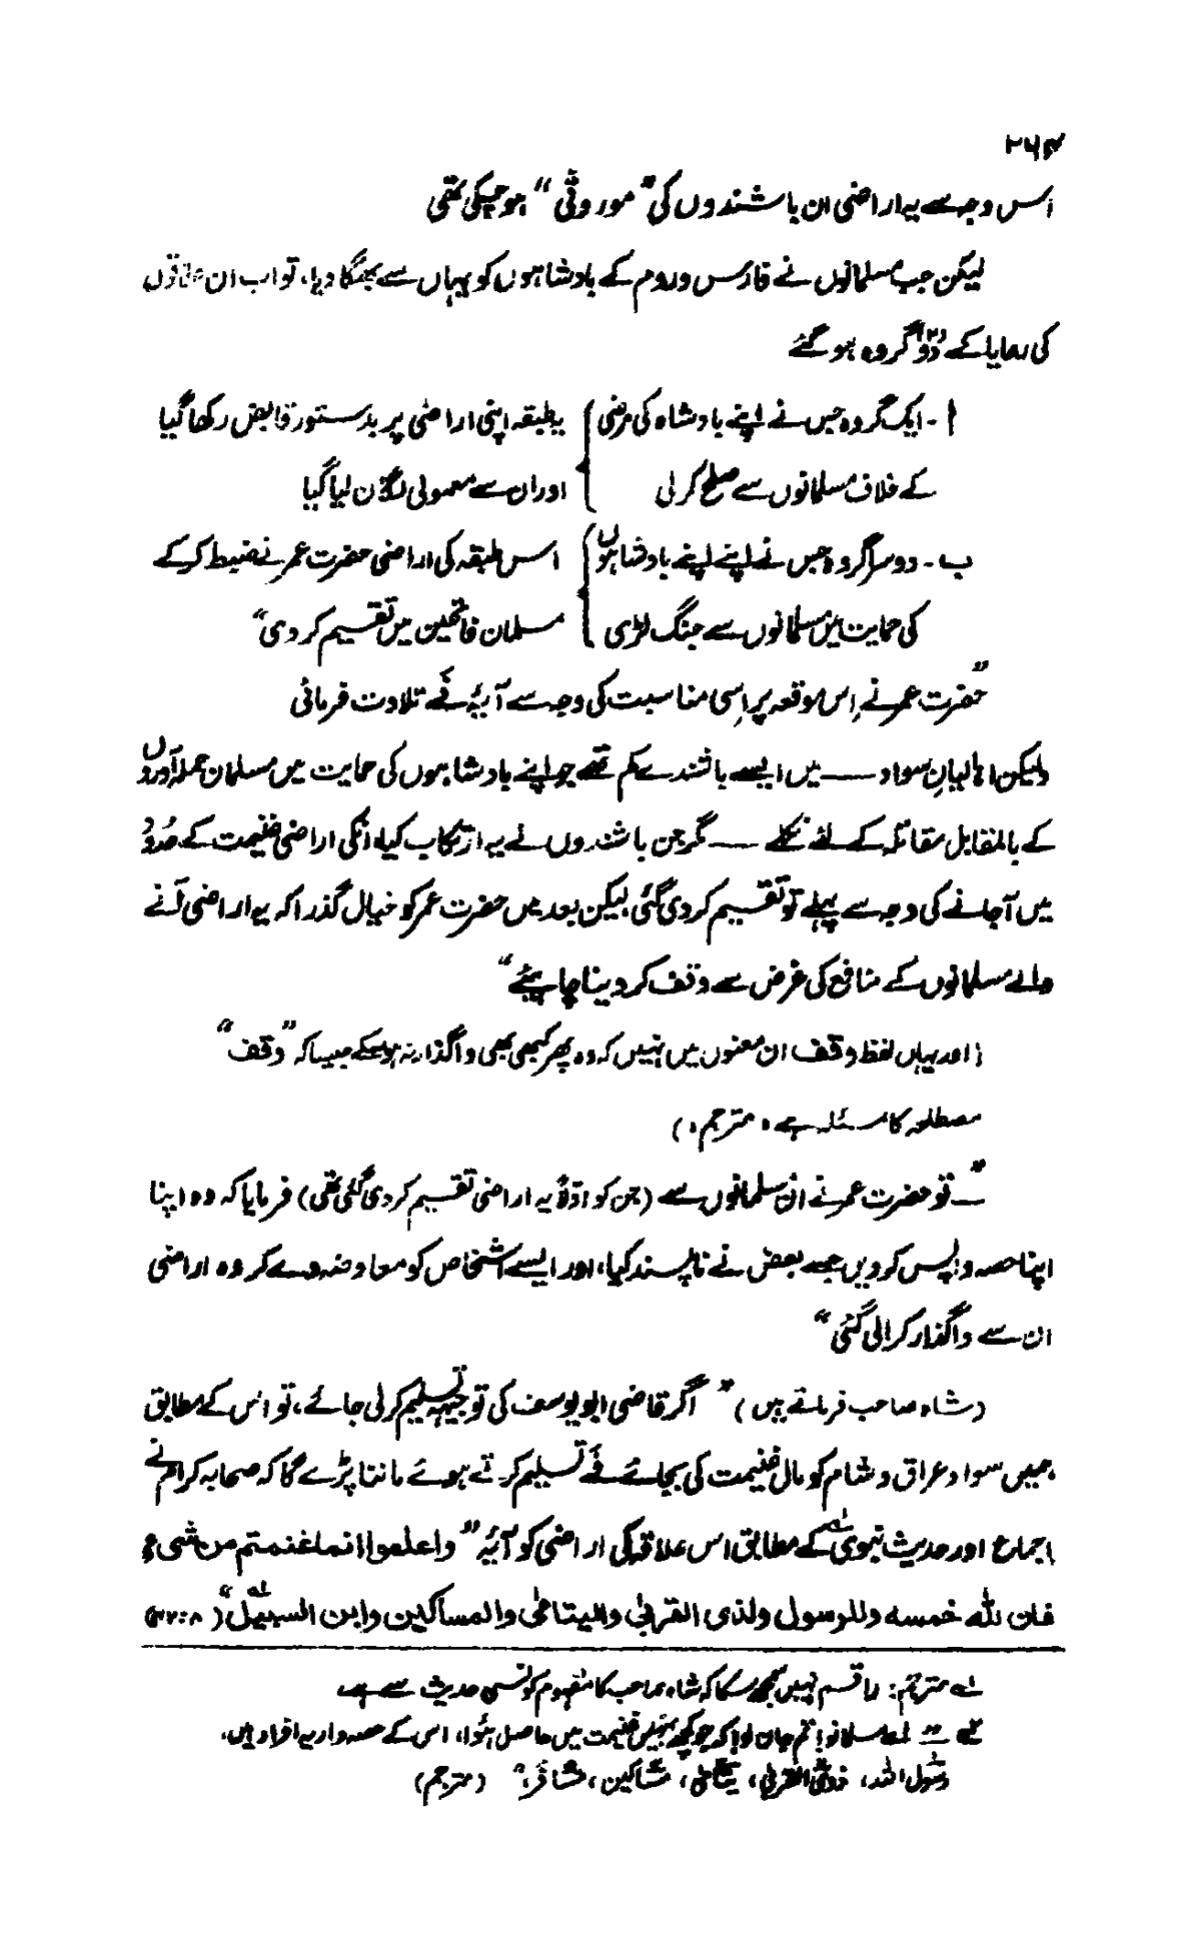 ۲۶۴
اس وجہ سے یہ اراضی ان باشندوں کی "موروثی" ہو چکی تھی
لیکن جب مسلمانوں نے فارس وروم کے بادشاہوں کو یہاں سے بھگا دیا، تو اب ان علاقوں
کی رعایا کے دو (۲) گروہ ہو گئے
ا - ایک گروہ جس نے اپنے بادشاہ کی مرضی } یہ طبقہ اپنی اراضی پر بدستور قابض رکھا گیا
کے خلاف مسلمانوں سے صلح کر لی } اور ان سے معمولی لگان لیا گیا
ب - دوسرا گروہ جس نے اپنے اپنے بادشاہوں } اس طبقہ کی اراضی حضرت عمر نے ضبط کر کے
کی حمایت میں مسلمانوں سے جنگ لڑی } مسلمان فاتحین میں تقسیم کر دی"
"حضرت عمر نے اِس موقعہ پر اِسی مناسبت کی وجہ سے آیۂ فَے تلاوت فرمائی
ولیکن اہالیانِ سواد ــــ میں ایسے باشندے کم تھے جو اپنے بادشاہوں کی حمایت میں مسلمان حملہ آوروں
کے بالمقابل مقاتلہ کے لئے نکلے ــــ مگر جن باشندوں نے یہ ارتکاب کیا، انکی اراضی غنیمت کے حُدُود
میں آجانے کی وجہ سے پہلے تو تقسیم کر دی گئی، لیکن بعد میں حضرت عمر کو خیال گذرا کہ یہ اراضی آنے
والے مسلمانوں کے منافع کی غرض سے وقف کر دینا چاہیئے"
(اور یہاں لفظ وقف ان معنوں میں نہیں کہ وہ پھر کبھی بھی واگذار نہ ہو سکے جیسا کہ "وقف"
مصطلحہ کا مسئلہ ہے، مترجم،)
"ــ تو حضرت عمر نے انُ مسلمانوں سے (جن کو اوّلاً یہ اراضی تقسیم کر دی گئی تھی) فرمایا کہ وہ اپنا
اپنا حصہ واپس کر دیں جسے بعض نے ناپسند کیا، اور ایسے اشخاص کو معاوضہ دے کر وہ اراضی
ان سے واگذار کرالی گئی"
(شاہ صاحب فرماتے ہیں) "اگر قاضی ابو یوسف کی توجیہہ تسلیم کر لی جائے، تو اس کے مطابق
ہمیں سواد عراق وشام کو مال غنیمت کی بجائے فَے تسلیم کرتے ہوئے ماننا پڑے گا کہ صحابہ کرام نے
اجماع اور حدیث نبوی لہ کے مطابق اس علاقہ کی اراضی کو آیۂ "واعلموا انما غنمتم من شیء
فان للہ خمسہ وللرسول ولذی القربٰی والیتامٰی والمساکین وابن السبیل" (۸:۴۲)
لہ مترجم: راقم نہیں سمجھ سکا کہ شاہ صاحب کا مفہوم کونسی حدیث سے ہے
"اے مسلمانو! تم جان لو! کہ جو کچھ تمہیں غنیمت میں حاصل ہُوا، اس کے حصہ دار یہ افراد ہیں،
رسول اللہ، ذوی القربٰی، یتامٰی، مساکین، مسافر،" (مترجم)